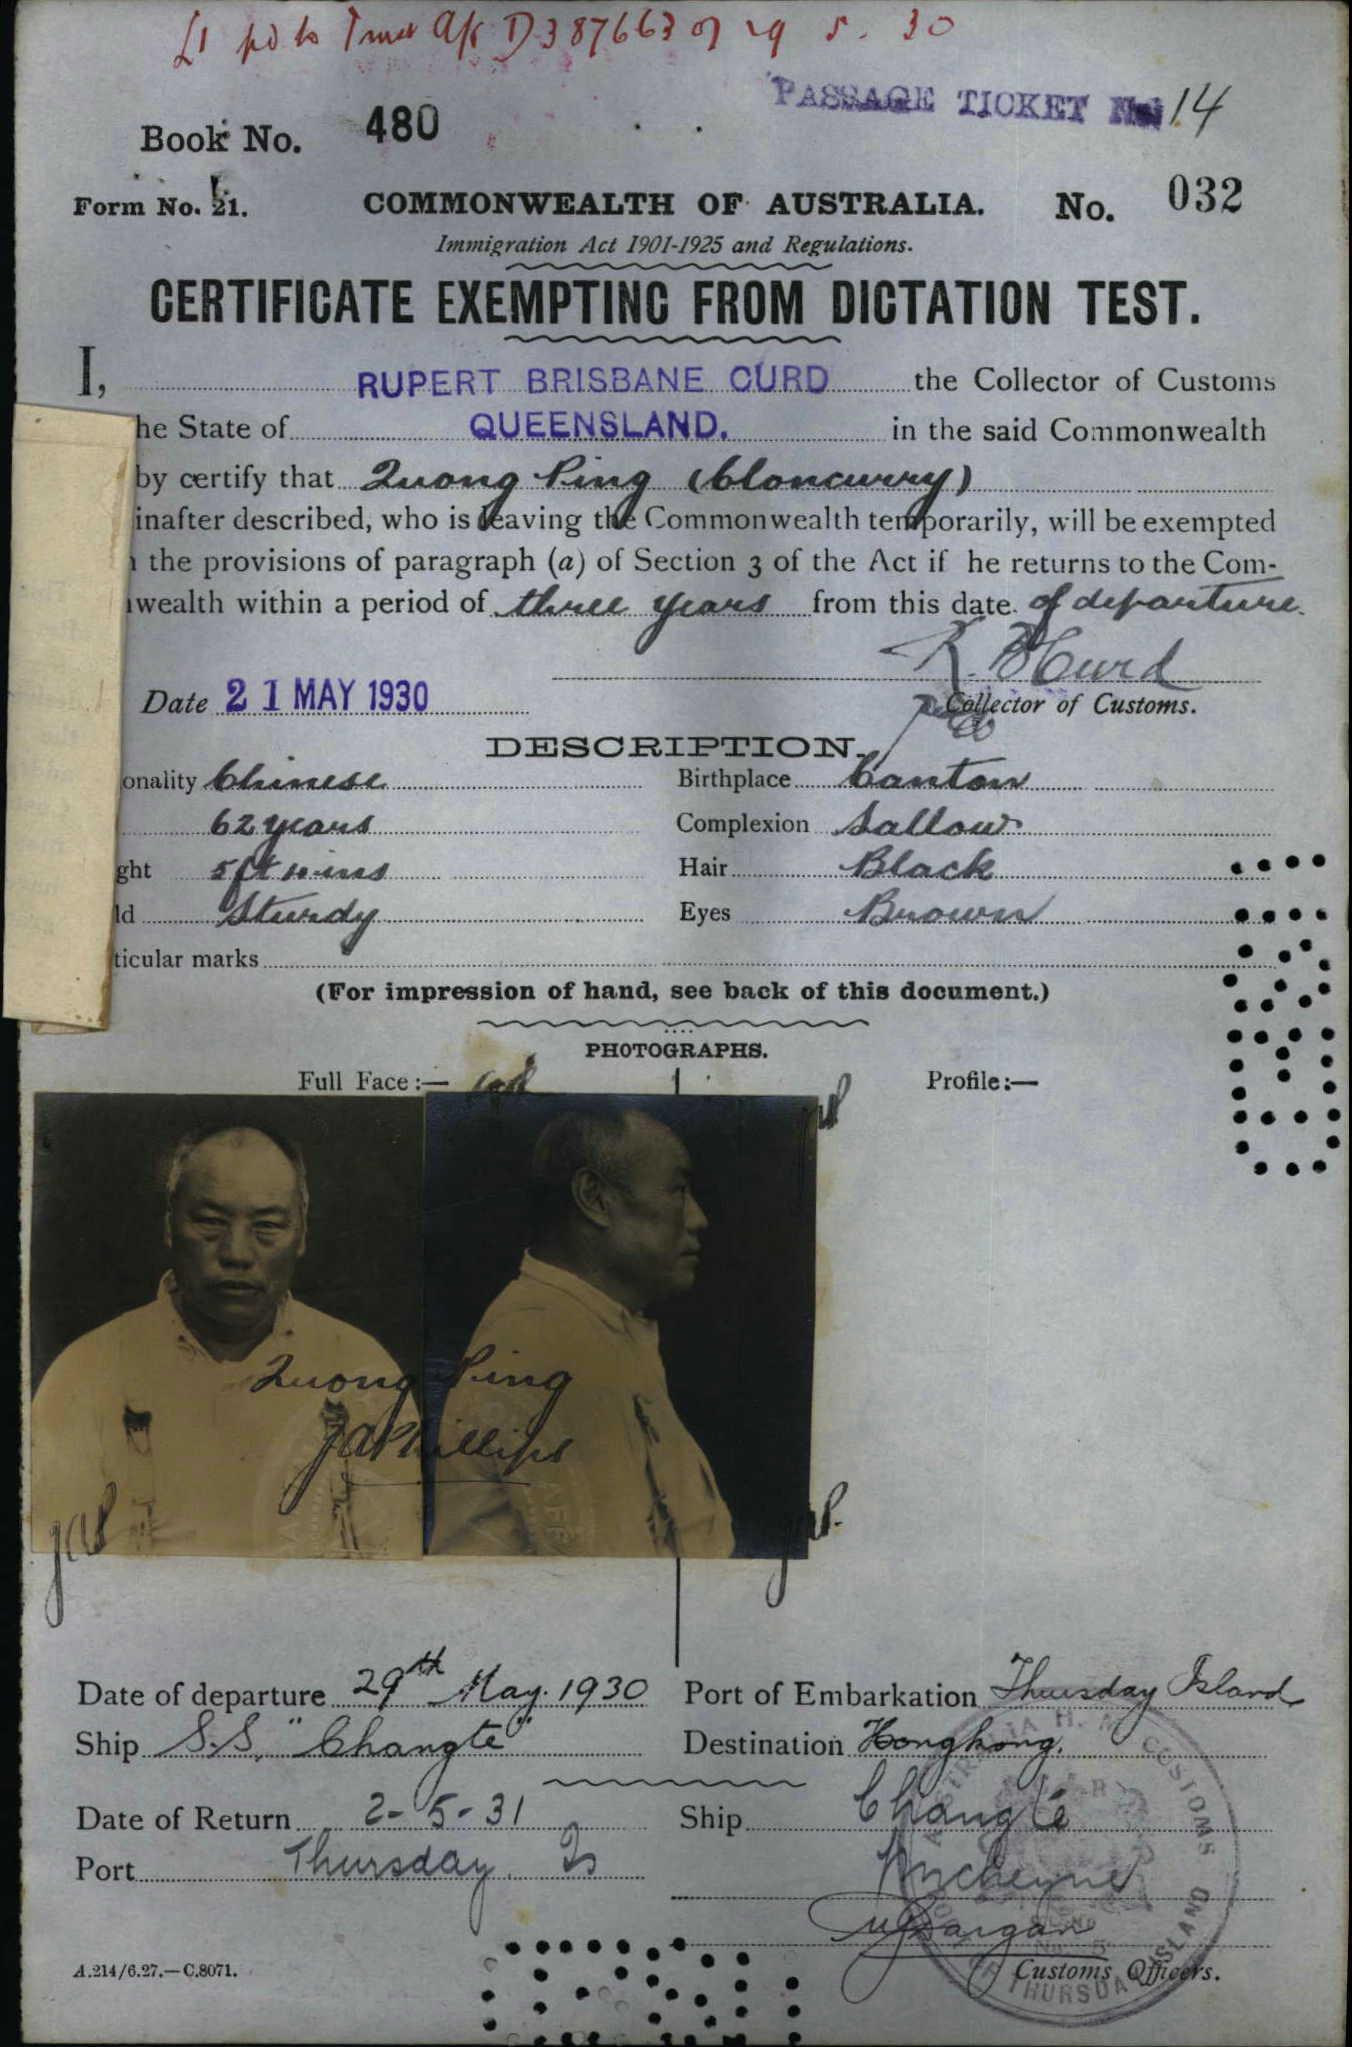 £1 pd to Trust a/c D387663 of 29 5. 30
PASSAGE TICKET No 14
Book No. 480
Form No. 21.
COMMONWEALTH OF AUSTRALIA. No. 032
Immigration Act 1901-1925 and Regulations.
CERTIFICATE EXEMPTING FROM DICTATION TEST.
I, RUPERT BRISBANE CURD the Collector of Customs
he State of QUEENSLAND. in the said Commonwealth
by certify that Quong Ping (Cloncurry)
inafter described, who is leaving the Commonwealth temporarily, will be exempted
the provisions of paragraph (a) of Section 3 of the Act if he returns to the Com-
wealth within a period of three years from this date of departure.
R. B Curd
Date 21 MAY 1930
Collector of Customs.
DESCRIPTION.
onality Chinese Birthplace Canton
62 years Complexion Sallow
ght 5ft ins Hair Black
ld Sturdy Eyes Brown
ticular marks
(For impression of hand, see back of this document.)
PHOTOGRAPHS.
Full Face:— Profile:—
Quong Ping
JAPhillips
jap
jap.
Date of departure 29th May. 1930 Port of Embarkation Thursday Island
Ship S.S. "Changte" Destination Hongkong.
Date of Return 2-5-31 Ship Changte
Port Thursday Is
Customs Officers.
A.214/6.27.—C.8071.
AUSTRALIA H. M. CUSTOMS
THURSDAY ISLAND